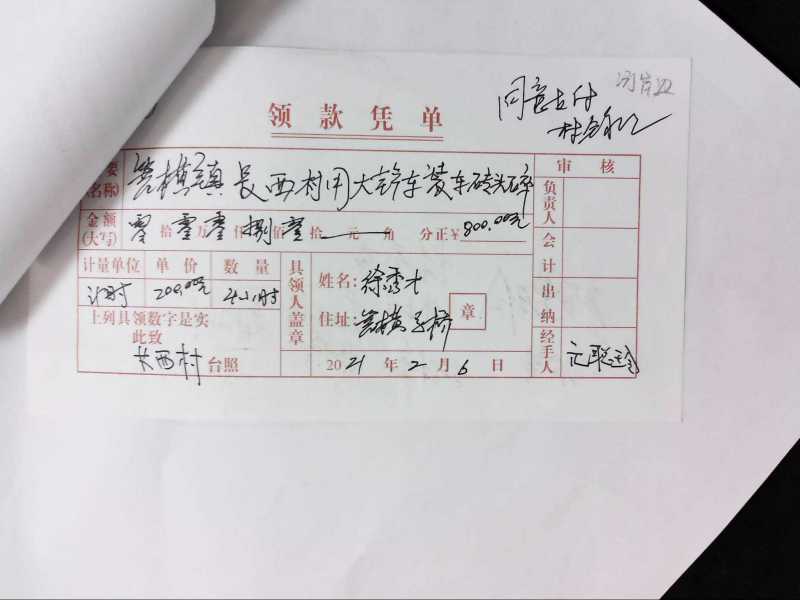 领款凭单
同意支付
河岸边
要 镇長西村用大铲车装车砖头碎
(名称)
审核
负责人
会计
出纳
经手人
金额 零拾零万零仟捌佰零拾 元 角 分正¥800.00元
(大写)
计量单位 单价 数量
计时 200.00元 4小时
上列具领数字是实
此致
长西村台照
具领人盖章
姓名:徐秀才
住址: 子桥
章
2021年2月6日